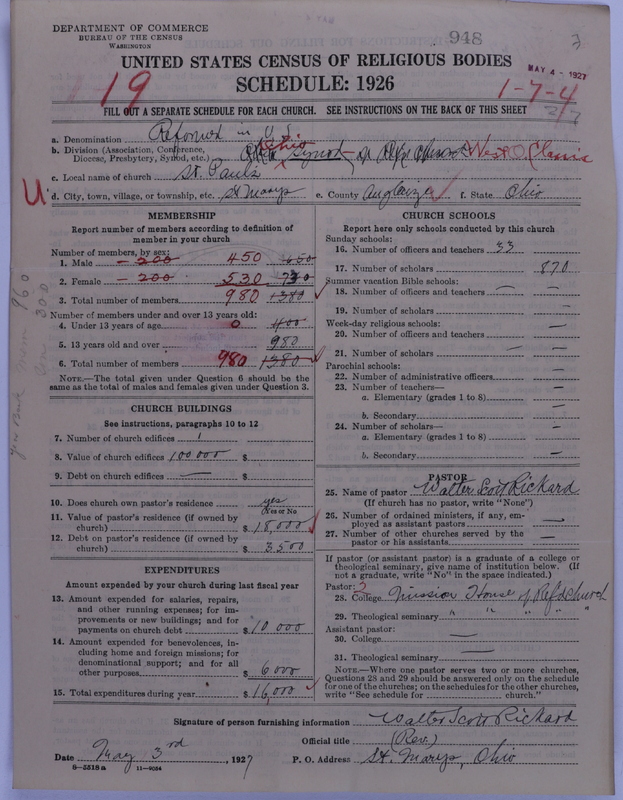 DEPARTMENT OF COMMERCE
BUREAU OF THE CENSUS
WASHINGTON
948
UNITED STATES CENSUS OF RELIGIOUS BODIES
MAY 4 - 1927
SCHEDULE: 1926
19
1-7-4
FILL OUT A SEPARATE SCHEDULE FOR EACH CHURCH. SEE INSTRUCTIONS ON THE BACK OF THIS SHEET
a. Denomination Reformed in U S
b. Division (Association, Conference, Diocese, Presbytery, Synod, etc.) Ohio Synod West O Classis
c. Local name of church St. Pauls
U
d. City, town, village, or township, etc. St Marys e. County Auglaize f. State Ohio
MEMBERSHIP
Report number of members according to definition of member in your church
Number of members, by sex:
1. Male 200 450 650
2. Female 200 530 730
3. Total number of members 980 1380
Number of members under and over 13 years old:
4. Under 13 years of age 0 400
5. 13 years old and over 980
6. Total number of members 980 1380
NOTE.—The total given under Question 6 should be the same as the total of males and females given under Question 3.
CHURCH BUILDINGS
See instructions, paragraphs 10 to 12
7. Number of church edifices 1
8. Value of church edifices 100000 $
9. Debt on church edifices — $
10. Does church own pastor's residence yes
(Yes or No)
11. Value of pastor's residence (if owned by church) $ 18,000
12. Debt on pastor's residence (if owned by church) $ 3500
EXPENDITURES
Amount expended by your church during last fiscal year
13. Amount expended for salaries, repairs, and other running expenses; for improvements or new buildings; and for payments on church debt $ 10 000
14. Amount expended for benevolences, including home and foreign missions; for denominational support; and for all other purposes $ 6000
15. Total expenditures during year $ 16,000
CHURCH SCHOOLS
Report here only schools conducted by this church
Sunday schools:
16. Number of officers and teachers 33
17. Number of scholars 870
Summer vacation Bible schools:
18. Number of officers and teachers —
19. Number of scholars —
Week-day religious schools:
20. Number of officers and teachers —
21. Number of scholars —
Parochial schools:
22. Number of administrative officers —
23. Number of teachers—
a. Elementary (grades 1 to 8) —
b. Secondary —
24. Number of scholars—
a. Elementary (grades 1 to 8) —
b. Secondary —
PASTOR
25. Name of pastor Walter Scott Richard
(If church has no pastor, write "None")
26. Number of ordained ministers, if any, employed as assistant pastors —
27. Number of other churches served by the pastor or his assistants —
If pastor (or assistant pastor) is a graduate of a college or theological seminary, give name of institution below. (If not a graduate, write "No" in the space indicated.)
Pastor: 2
28. College Mission House of Refd church
29. Theological seminary " " " " "
Assistant pastor:
30. College —
31. Theological seminary —
NOTE.—Where one pastor serves two or more churches, Questions 28 and 29 should be answered only on the schedule for one of the churches; on the schedules for the other churches, write "See schedule for ............ church."
Signature of person furnishing information Walter Scott Richard
Official title (Rev.)
Date May 3rd, 1927 P. O. Address St. Marys, Ohio
8-5518 a 11-9054